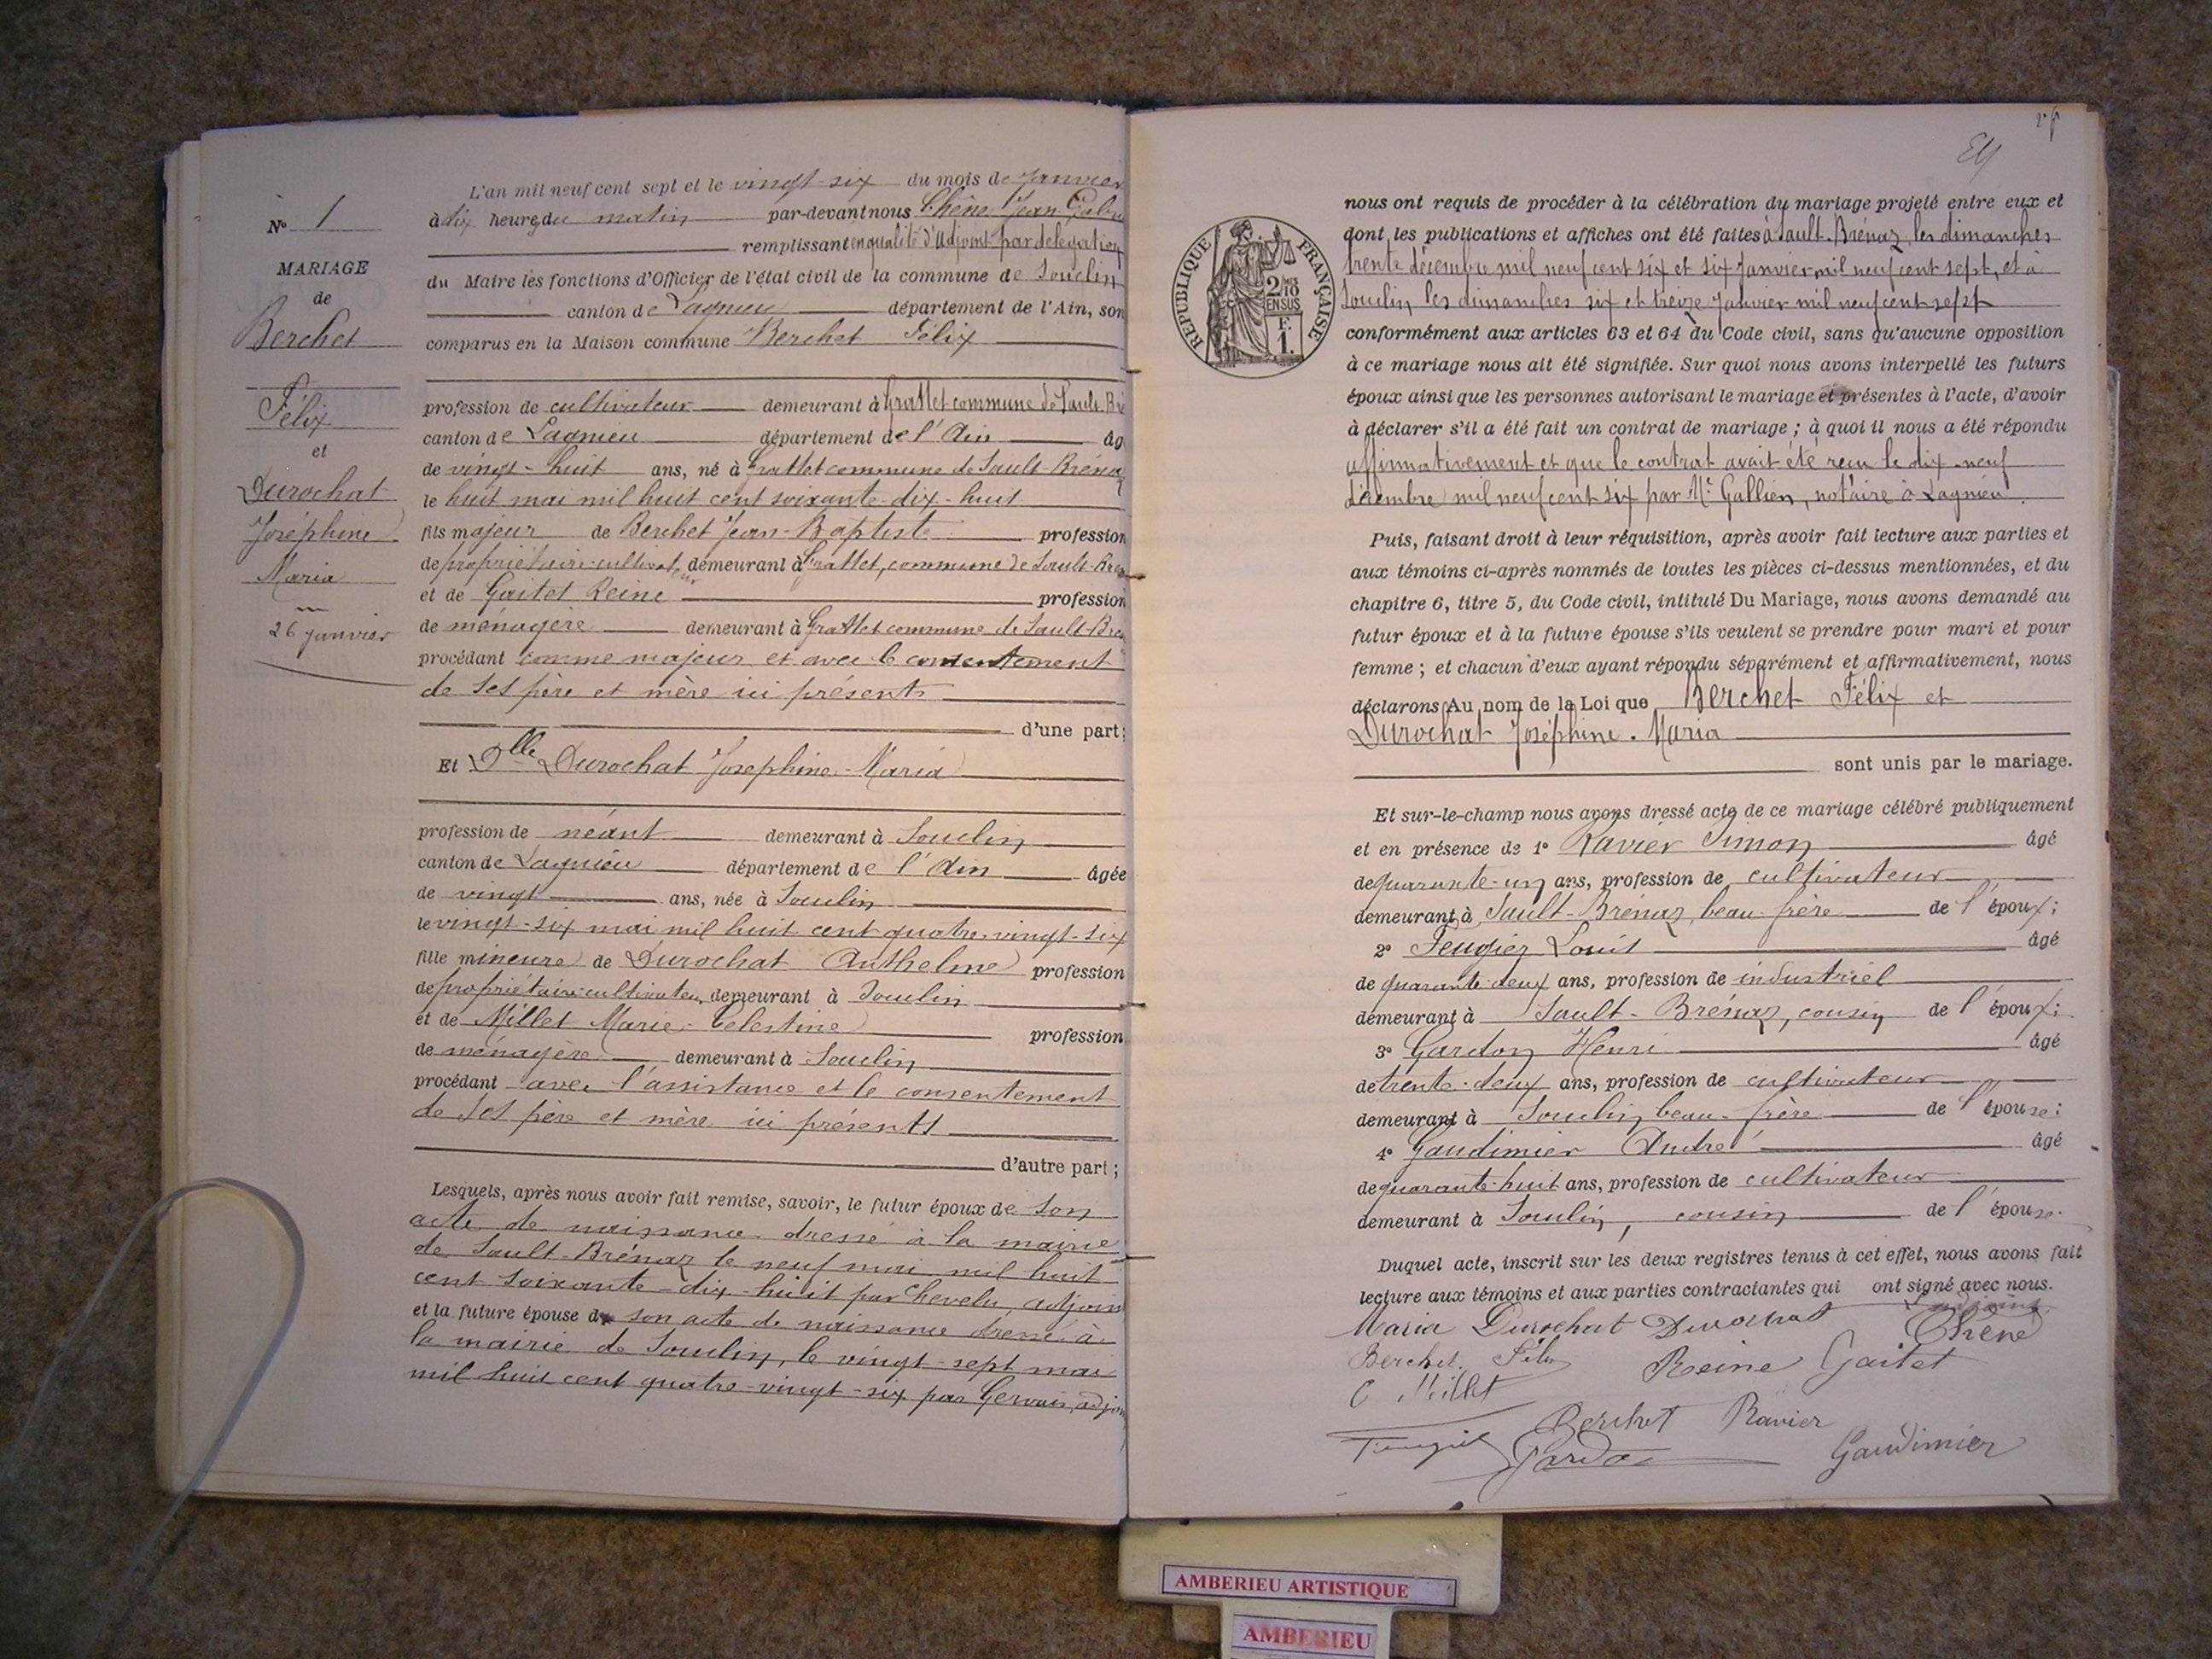 N° 1
MARIAGE
de
Berchet
Félix
et
Durochat
Joséphine
Maria
26 janvier
L'an mil neuf cent sept et le vingt-six du mois de Janvier
à dix heures du matin par-devant nous Chêne Jean
remplissant en qualité d'Adjoint par délégation
du Maire les fonctions d'Officier de l'état civil de la commune de Souclin
canton de Lagnieu département de l'Ain, son
comparus en la Maison commune Berchet Félix
profession de cultivateur demeurant à Grattet commune de Sault-Bré
canton de Lagnieu département de l'Ain âg
de vingt-huit ans, né à Grattet commune de Sault-Brénaz
le huit mai mil huit cent soixante-dix-huit
fils majeur de Berchet Jean-Baptiste profession
de propriétaire-cultivateur demeurant à Grattet, commune de Sault-Bré
et de Gaitet Reine profession
de ménagère demeurant à Grattet commune de Sault-Bré
procédant comme majeur et avec le consentement
de ses père et mère ici présents
d'une part;
Et Dlle Durochat Josephine-Maria
profession de néant demeurant à Souclin
canton de Lagnieu département de l'Ain âgée
de vingt ans, née à Souclin
le vingt-six mai mil huit cent quatre-vingt-six
fille mineure de Durochat Anthelme profession
de propriétaire-cultivateur demeurant à Souclin
et de Millet Marie-Célestine profession
de ménagère demeurant à Souclin
procédant avec l'assistance et le consentement
de ses père et mère ici présents
d'autre part;
Lesquels, après nous avoir fait remise, savoir, le futur époux de son
acte de naissance dressé à la mairie
de Sault-Brénaz le neuf mai mil huit
cent soixante-dix-huit par Chevelu, adjoin
et la future épouse de son acte de naissance dressé à
la mairie de Souclin, le vingt-sept mai
mil huit cent quatre-vingt-six par Gervais, adjoin
REPUBLIQUE FRANÇAISE
2/10
EN SUS
1 F.
nous ont requis de procéder à la célébration du mariage projeté entre eux et
dont les publications et affiches ont été faites à Sault-Brénaz, les dimanches
trente décembre mil neuf cent six et six Janvier mil neuf cent sept, et à
Souclin les dimanches six et treize Janvier mil neuf cent sept
conformément aux articles 63 et 64 du Code civil, sans qu'aucune opposition
à ce mariage nous ait été signifiée. Sur quoi nous avons interpellé les futurs
époux ainsi que les personnes autorisant le mariage et présentes à l'acte, d'avoir
à déclarer s'il a été fait un contrat de mariage; à quoi il nous a été répondu
affirmativement et que le contrat avait été reçu le dix-neuf
décembre mil neuf cent six par Me Gallien, notaire à Lagnieu.
Puis, faisant droit à leur réquisition, après avoir fait lecture aux parties et
aux témoins ci-après nommés de toutes les pièces ci-dessus mentionnées, et du
chapitre 6, titre 5, du Code civil, intitulé Du Mariage, nous avons demandé au
futur époux et à la future épouse s'ils veulent se prendre pour mari et pour
femme; et chacun d'eux ayant répondu séparément et affirmativement, nous
déclarons Au nom de la Loi que Berchet Félix et
Durochat Joséphine-Maria
sont unis par le mariage.
Et sur-le-champ nous avons dressé acte de ce mariage célébré publiquement
et en présence de 1° Ravier Simon âgé
de quarante-un ans, profession de cultivateur
demeurant à Sault-Brénaz, beau-frère de l'époux;
2° Feugier Louis âgé
de quarante-deux ans, profession de industriel
demeurant à Sault-Brénaz, cousin de l'époux;
3° Gardon Henri âgé
de trente-deux ans, profession de cultivateur
demeurant à Souclin, beau-frère de l'épouse;
4° Gaudimier André âgé
de quarante-huit ans, profession de cultivateur
demeurant à Souclin, cousin de l'épouse.
Duquel acte, inscrit sur les deux registres tenus à cet effet, nous avons fait
lecture aux témoins et aux parties contractantes qui ont signé avec nous.
Maria Durochat Durochat Chêne
Berchet Félix Reine Gaitet
C Millet
Berchet Ravier
Gardon Gaudimier
AMBERIEU ARTISTIQUE
AMBERIEU